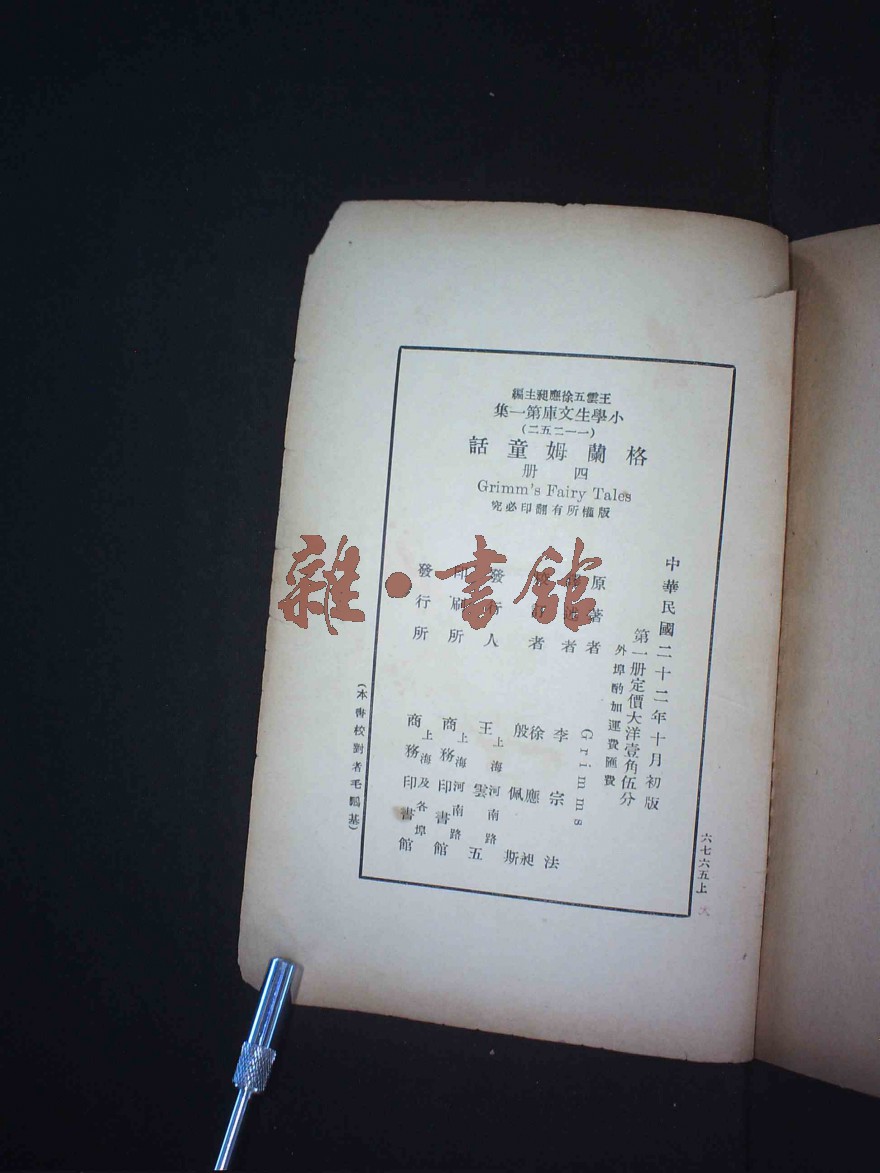 王雲五徐應昶主編
小學生文庫第一集
(一一二五二)
格蘭姆童話
四册
Grimm's Fairy Tales
版權所有翻印必究
中華民國二十二年十月初版
第一册定價大洋壹角伍分
外埠酌加運費匯費
原著者 Grimms
述者 李宗法
者 徐應昶 殷佩斯
發行人 上海河南路 王雲五
印刷所 上海河南路 商務印書館
發行所 上海及各埠 商務印書館
(本書校對者毛基)
六七六五上
雜·書館